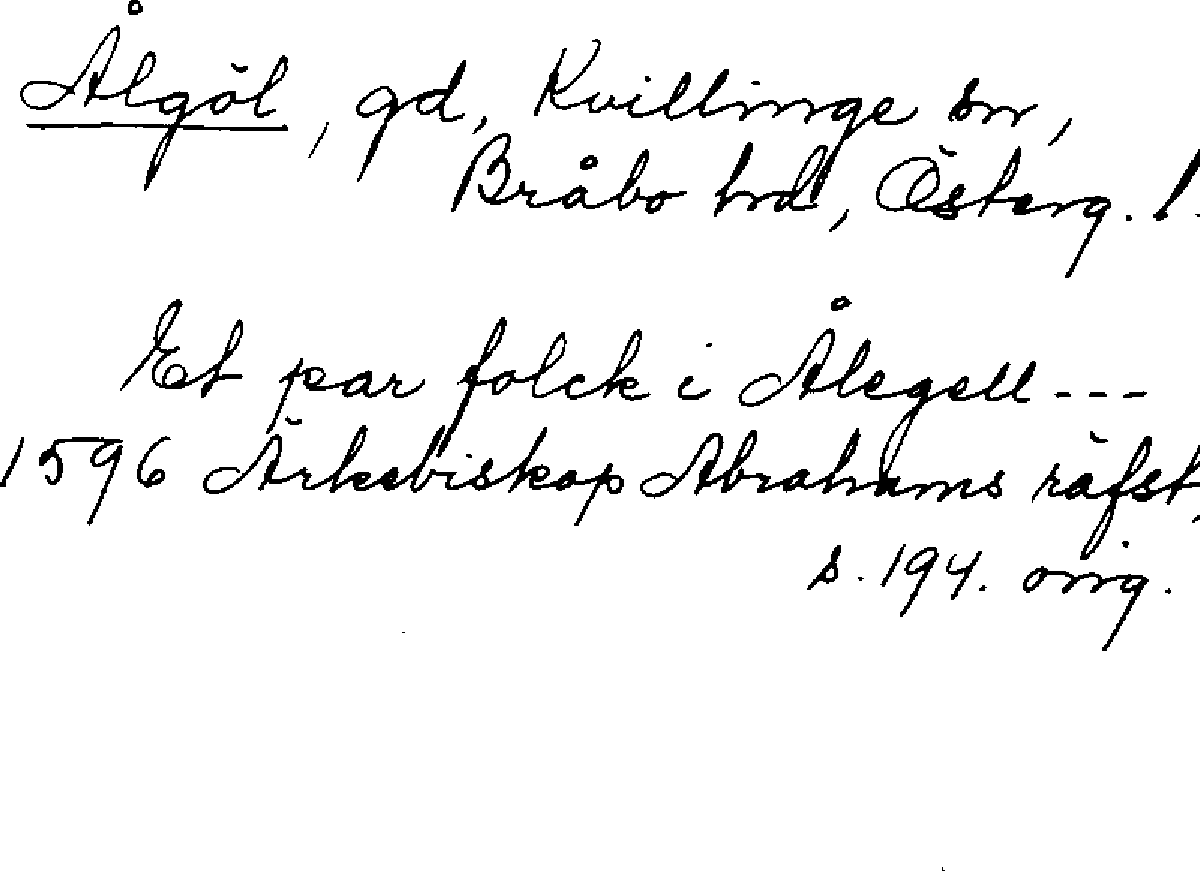 Ålgöl, gd, Kvillinge sn,
Bråbo hrd, Österg. l.
Et par folck i Ålegell ---
1596 Ärkebiskop Abrahams räfst,
s. 194. orig.